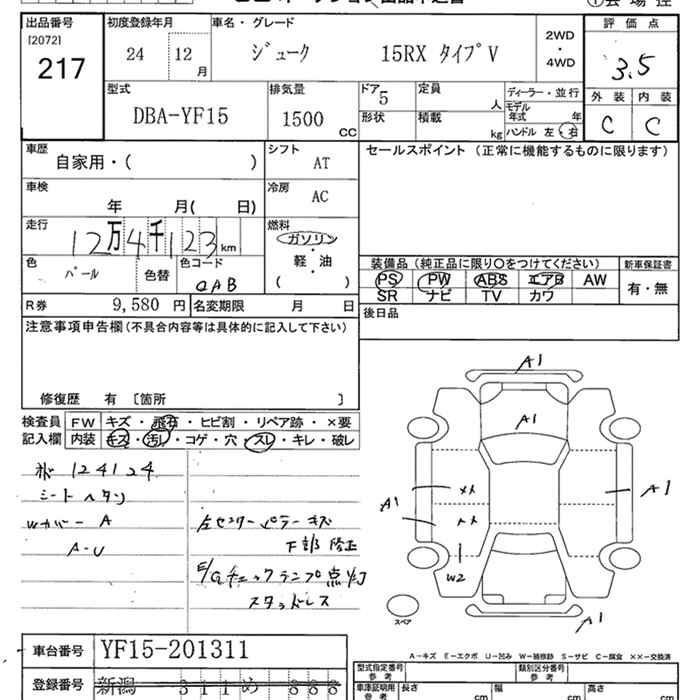 出品番号
[2072]
217
初度登録年月
24 12 月
車名・グレード
ジューク 15RX タイプV
2WD
・
4WD
評価点
3.5
外装 内装
C C
型式
DBA-YF15
排気量
1500 CC
ドア 5
形状
定員 人
積載 kg
ディーラー・並行
モデル年式 年
ハンドル 左・右
車歴
自家用・( )
シフト
AT
車検
年 月( 日)
冷房
AC
走行
12万4千123km
燃料
ガソリン
・
軽・油
( )
色
パール
色替
色コード
QAB
R券 9,580 円
名変期限 月 日
セールスポイント (正常に機能するものに限ります)
装備品 (純正品に限り○をつけてください)
PS PW ABS エアB AW
SR ナビ TV カワ
新車保証書
有・無
後日品
注意事項申告欄(不具合内容等は具体的に記入して下さい)
修復歴 有 〔箇所 〕
検査員
記入欄
FW キズ・飛石・ヒビ割・リペア跡・×要
内装 キズ・汚レ・コゲ・穴・スレ・キレ・破レ
124124
シートヘタリ
Wカバー A
A-U
左センターピラーキズ
下部修正
E/Gチェックランプ点灯
スタッドレス
A1
A1
A1
A1
A1
××
W2
スペア
A－キズ E－エクボ U－凹み W－補修跡 S－サビ C－腐食 ××－交換済
車台番号 YF15-201311
登録番号 新潟 311 め 888
型式指定番号
参考
類別区分番号
参考
車庫証明用
参考
長さ cm
幅 cm
高さ cm